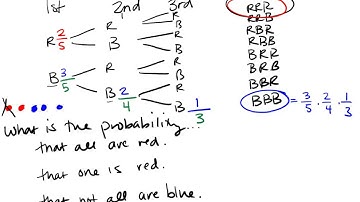 1st 2nd 3rd
R 2/5
R
B
R
B
R
B
B 3/5
R
B 2/4
R
B
R
B 1/3
RRR
RRB
RBR
RBB
BRR
BRB
BBR
BBB = 3/5 · 2/4 · 1/3
What is the probability...
that all are red.
that one is red.
that not all are blue.